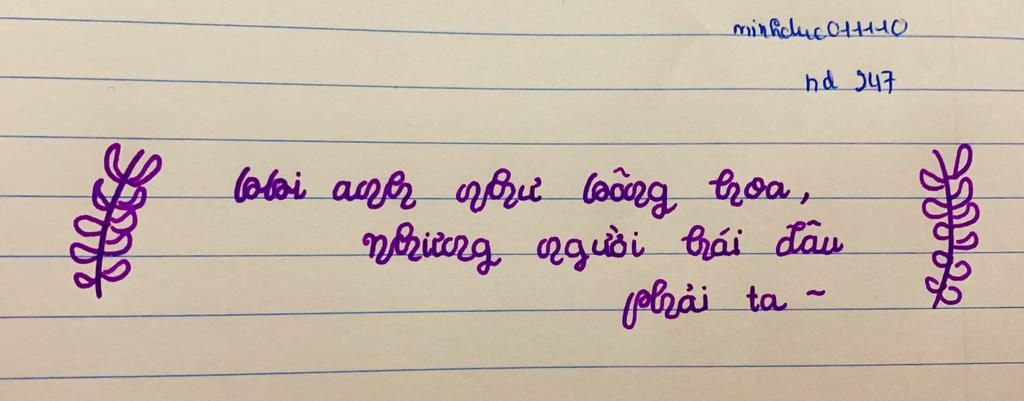 minhduc011110
nd 247
bbi anh như bông hoa,
nhưng người hái đâu
phải ta ~